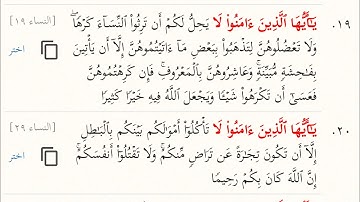 ١٩. يَـٰٓأَيُّهَا ٱلَّذِينَ ءَامَنُوا۟ لَا يَحِلُّ لَكُمْ أَن تَرِثُوا۟ ٱلنِّسَآءَ كَرْهًاۖ [النساء ١٩]
وَلَا تَعْضُلُوهُنَّ لِتَذْهَبُوا۟ بِبَعْضِ مَآ ءَاتَيْتُمُوهُنَّ إِلَّآ أَن يَأْتِينَ اختر
بِفَـٰحِشَةٍ مُّبَيِّنَةٍۚ وَعَاشِرُوهُنَّ بِٱلْمَعْرُوفِۚ فَإِن كَرِهْتُمُوهُنَّ
فَعَسَىٰٓ أَن تَكْرَهُوا۟ شَيْـًٔا وَيَجْعَلَ ٱللَّهُ فِيهِ خَيْرًا كَثِيرًا
٢٠. يَـٰٓأَيُّهَا ٱلَّذِينَ ءَامَنُوا۟ لَا تَأْكُلُوٓا۟ أَمْوَٰلَكُم بَيْنَكُم بِٱلْبَـٰطِلِ [النساء ٢٩]
إِلَّآ أَن تَكُونَ تِجَـٰرَةً عَن تَرَاضٍ مِّنكُمْۚ وَلَا تَقْتُلُوٓا۟ أَنفُسَكُمْۚ اختر
إِنَّ ٱللَّهَ كَانَ بِكُمْ رَحِيمًا